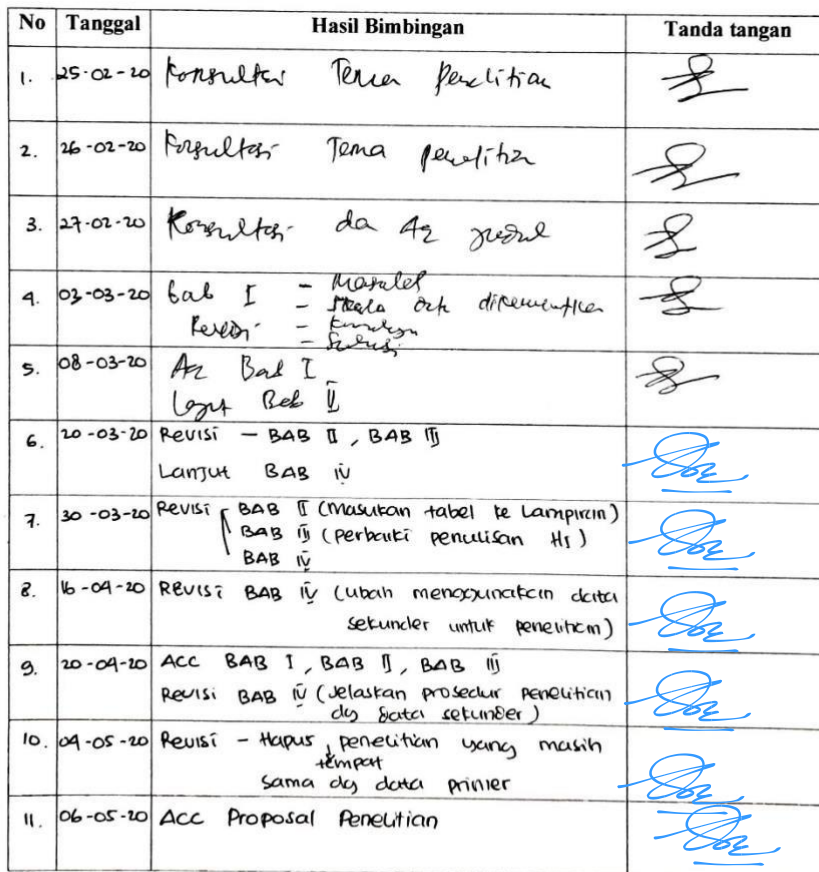 No Tanggal Hasil Bimbingan Tanda tangan
1. 25-02-20 Konsultasi Tema Penelitian
2. 26-02-20 Konsultasi Tema penelitian
3. 27-02-20 Konsultasi da Acc judul
4. 03-03-20 Bab I - Masalah
- Skala
Revisi -
- Solusi
5. 08-03-20 Acc Bab I
Lanjut Bab II
6. 20-03-20 Revisi - BAB II, BAB III
Lanjut BAB IV
7. 30-03-20 Revisi BAB II (Masukan tabel ke Lampiran)
BAB III (perbaiki penulisan H1)
BAB IV
8. 16-04-20 Revisi BAB IV (ubah menggunakan data
sekunder untuk penelitian)
9. 20-04-20 ACC BAB I, BAB II, BAB III
Revisi BAB IV (Jelaskan prosedur penelitian
dg data sekunder)
10. 04-05-20 Revisi - Hapus penelitian yang masih
tempat
sama dg data primer
11. 06-05-20 ACC Proposal Penelitian